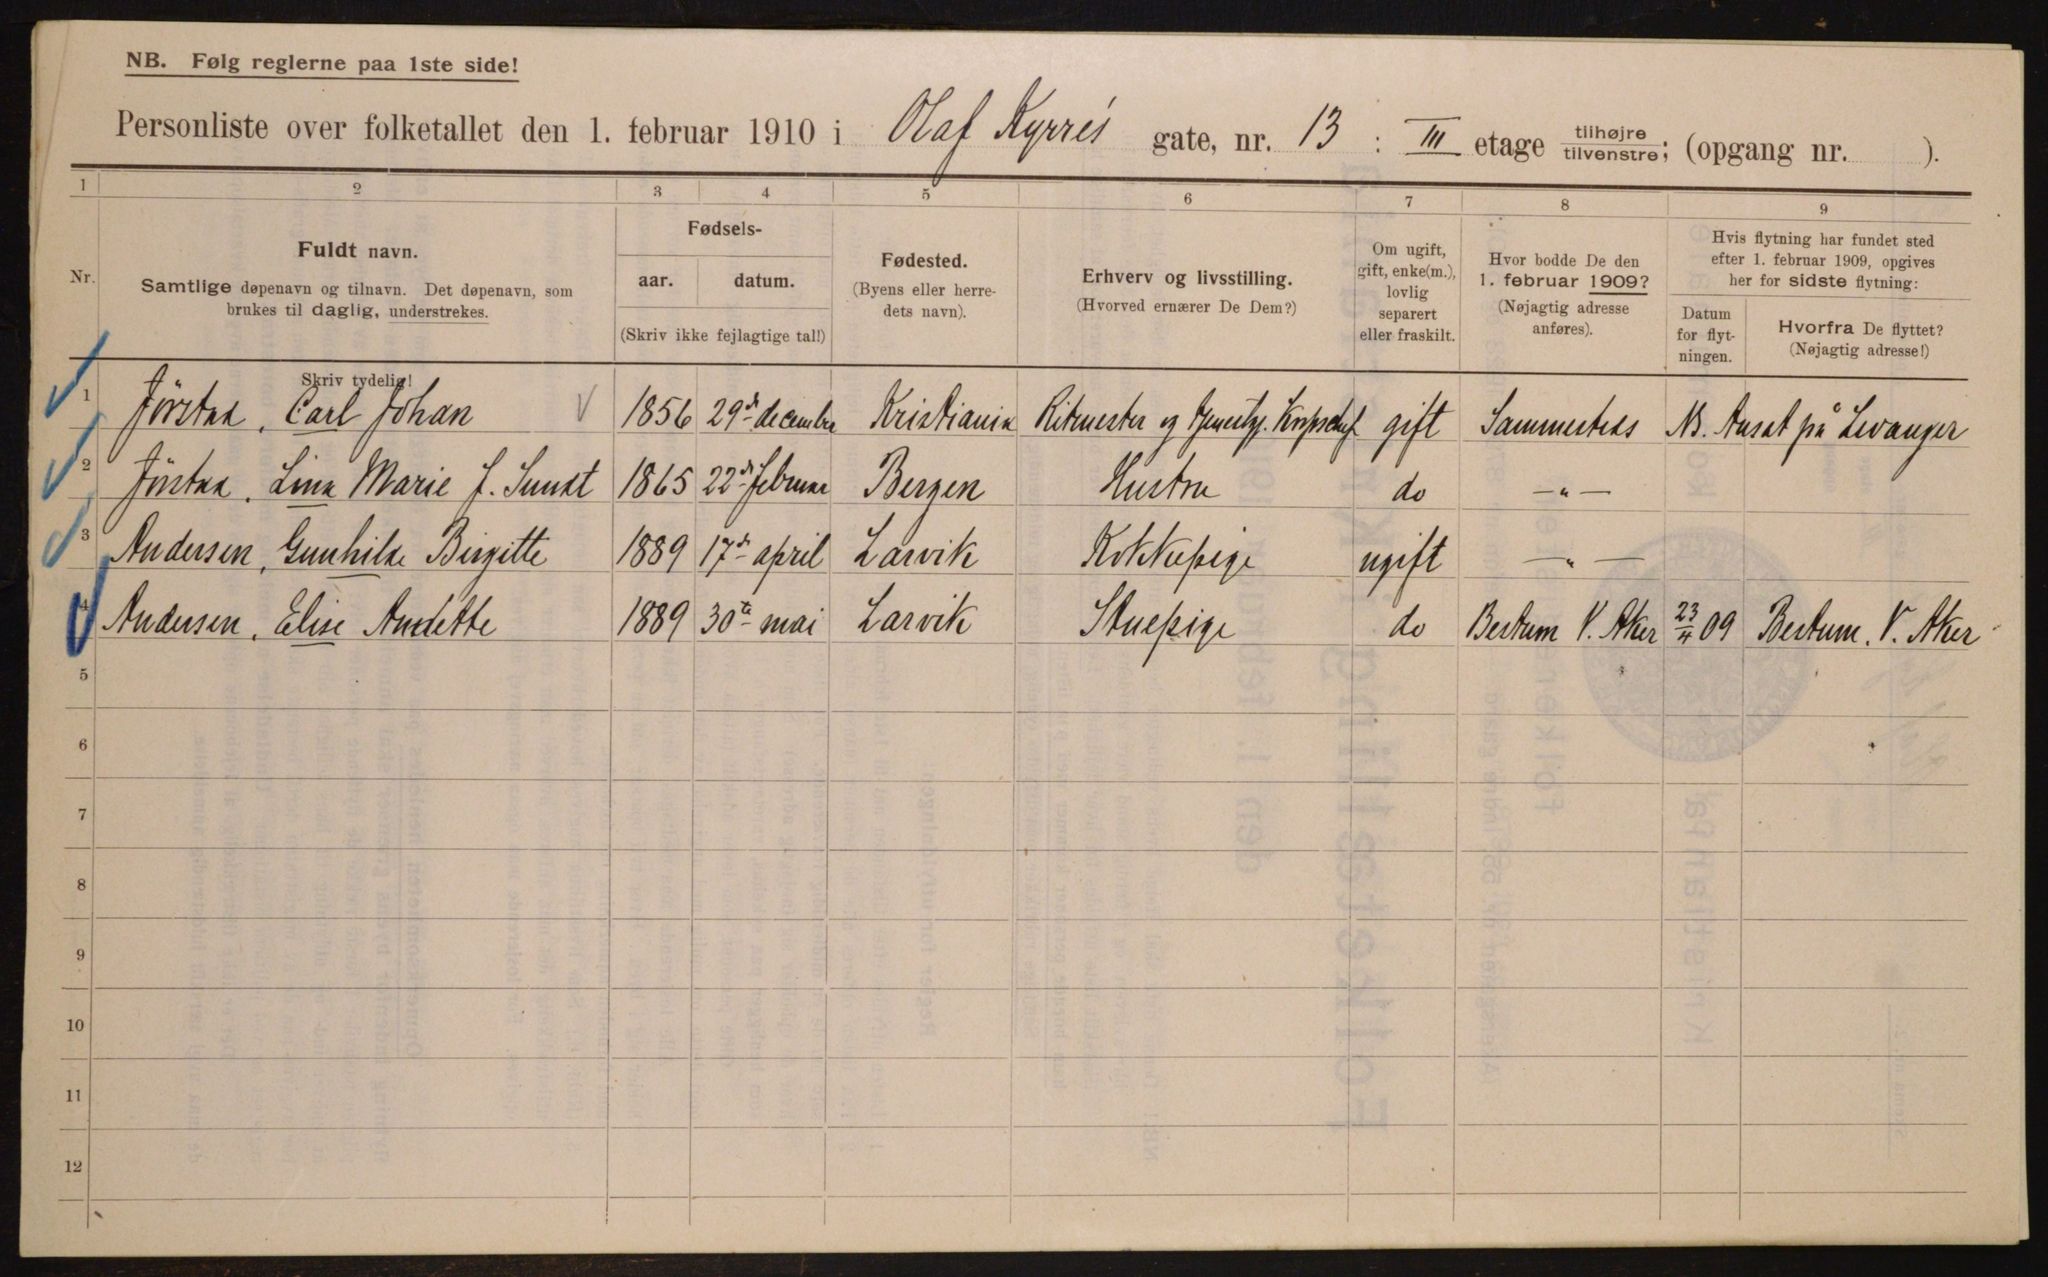 NB. Følg reglerne paa 1ste side!
Personliste over folketallet den 1. februar 1910 i Olaf Kyrrés gate, nr. 13 : III etage tilhøjre / tilvenstre; (opgang nr. ).
1 2 3 4 5 6 7 8 9
Nr.
Fuldt navn.
Samtlige døpenavn og tilnavn. Det døpenavn, som
brukes til daglig, understrekes.
Skriv tydelig!
Fødsels-
aar. datum.
(Skriv ikke fejlagtige tal!)
Fødested.
(Byens eller herre-
dets navn).
Erhverv og livsstilling.
(Hvorved ernærer De Dem?)
Om ugift,
gift, enke(m.),
lovlig
separert
eller fraskilt.
Hvor bodde De den
1. februar 1909?
(Nøjagtig adresse
anføres).
Hvis flytning har fundet sted
efter 1. februar 1909, opgives
her for sidste flytning:
Datum
for flyt-
ningen.
Hvorfra De flyttet?
(Nøjagtig adresse!)
1 Jörstad, Carl Johan 1856 29de december Kristiania Ritmester og gift Sammesteds NB. Ansat på Levanger
2 Jörstad, Lina Marie f. Sundt 1865 22de februar Bergen Hustru do —"—
3 Andersen, Gunhilde Birgitte 1889 17de april Larvik Kokkepige ugift —"—
4 Andersen, Elise 1889 30te mai Larvik Stuepige do Bestum V. Aker 23/4 09 Bestum, V. Aker
5
6
7
8
9
10
11
12